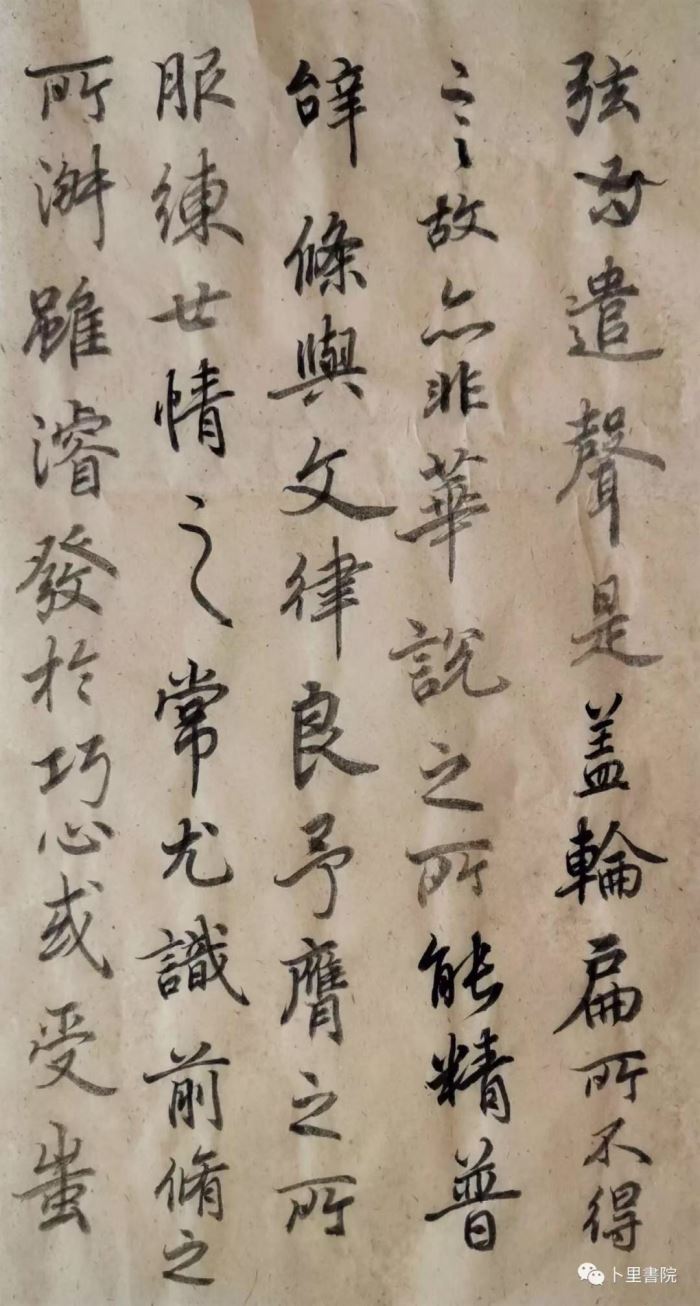 弦而遣聲是盖輪扁所不得
言故亦非華説之所能精普
辝條與文律良予膺之所
服練世情之常尤識前脩之
所淑雖濬發於巧心或受蚩
卜里書院